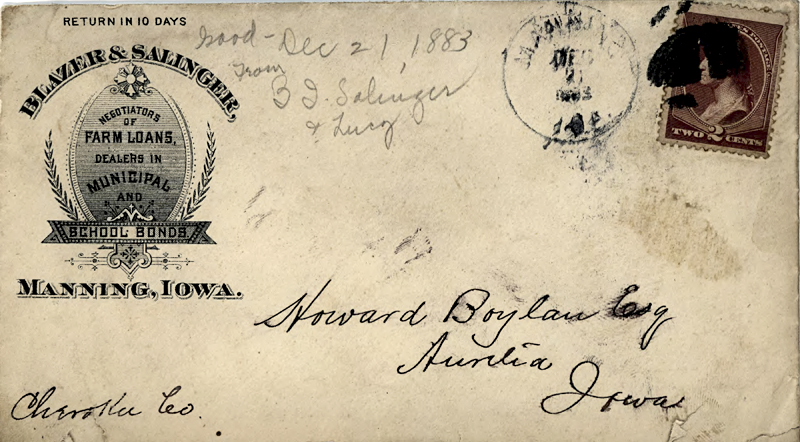 RETURN IN 10 DAYS
BLAZER & SALINGER,
NEGOTIATORS
OF
FARM LOANS,
DEALERS IN
MUNICIPAL
AND
SCHOOL BONDS.
MANNING, IOWA.
Good - Dec 21, 1883
From
B I. Salinger
& Lucy
MANNING
DEC
21
1883
TWO 2 CENTS
Howard Boylan Esq
Aurelia
Iowa
Cherokee Co.